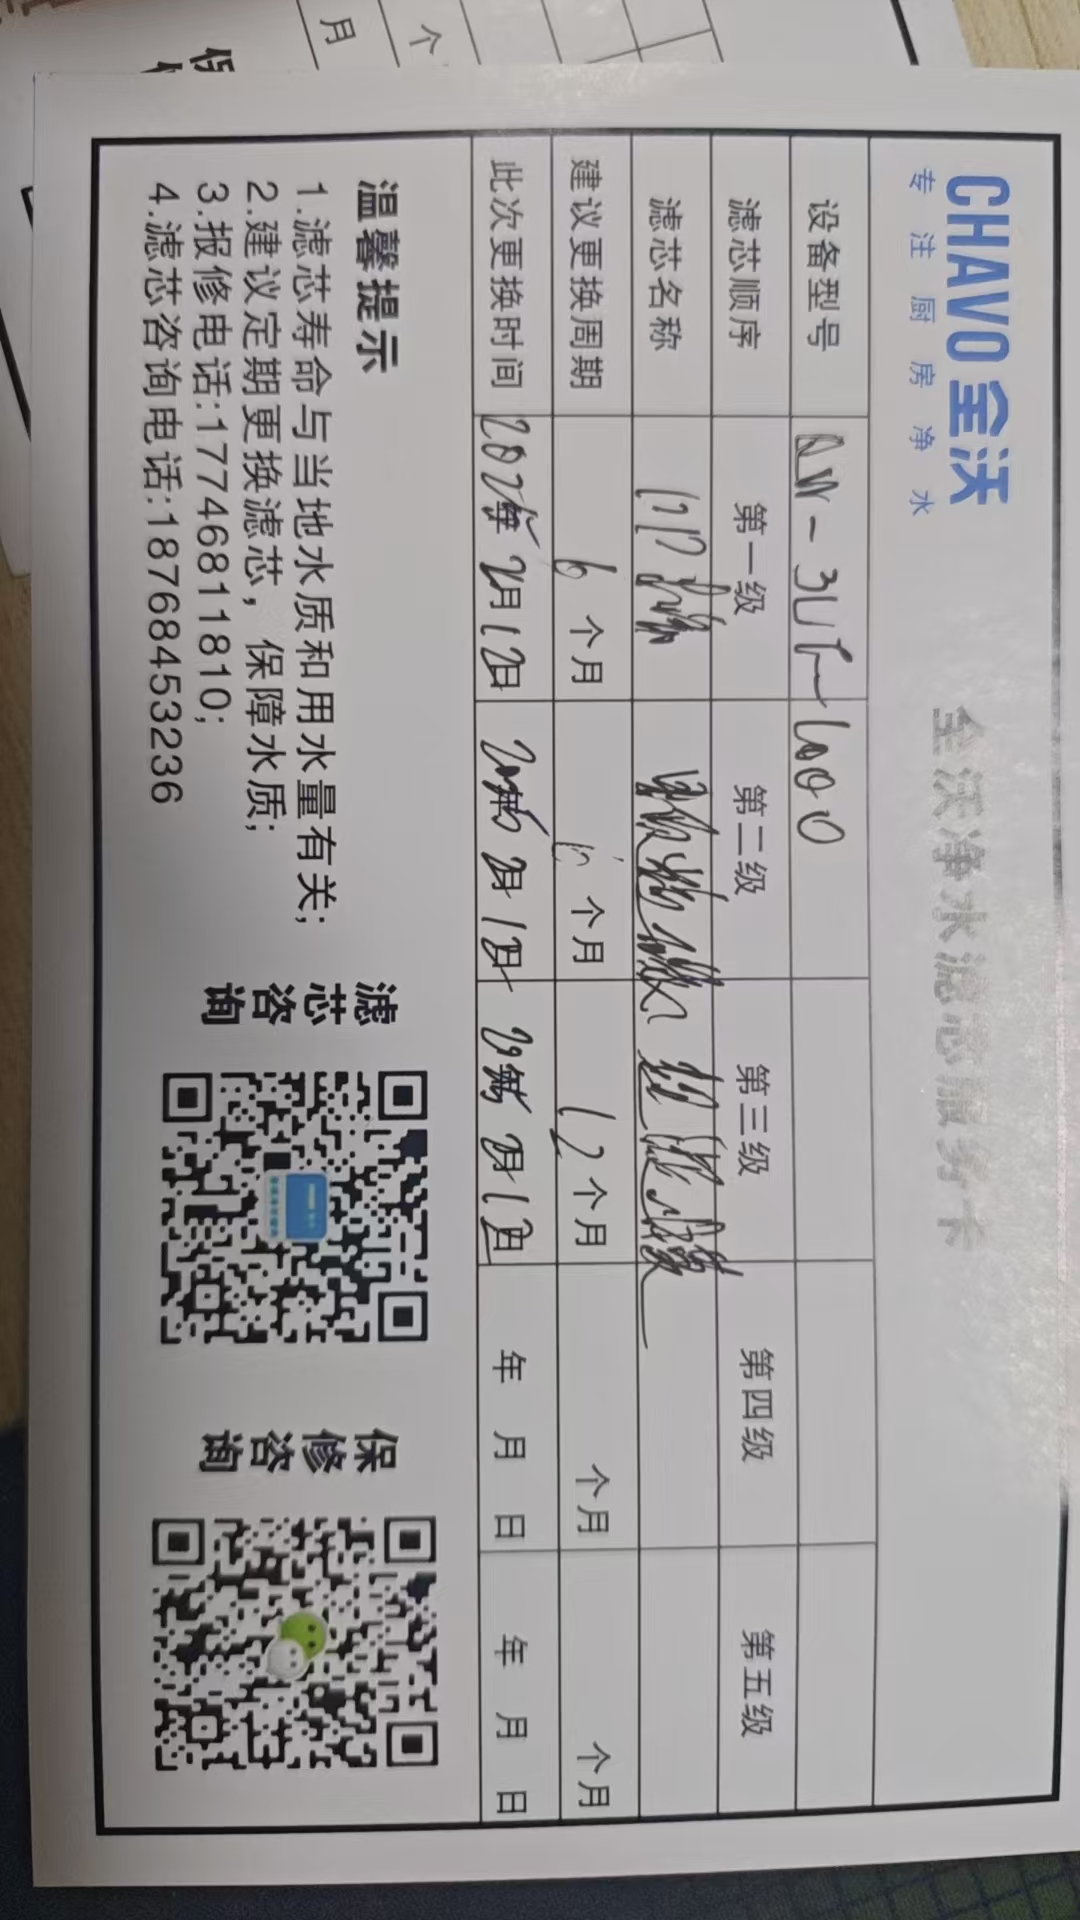 CHAVO 全沃
专注厨房净水
全沃净水滤芯服务卡
设备型号
滤芯顺序 第一级 第二级 第三级 第四级 第五级
滤芯名称
建议更换周期 6 个月 个月 12 个月 个月 个月
此次更换时间 年 月 1 日 年 月 1 日 年 月 1 日 年 月 日 年 月 日
温馨提示
1.滤芯寿命与当地水质和用水量有关;
2.建议定期更换滤芯，保障水质;
3.报修电话:17746811810;
4.滤芯咨询电话:18768453236
滤芯咨询
保修咨询
月
个